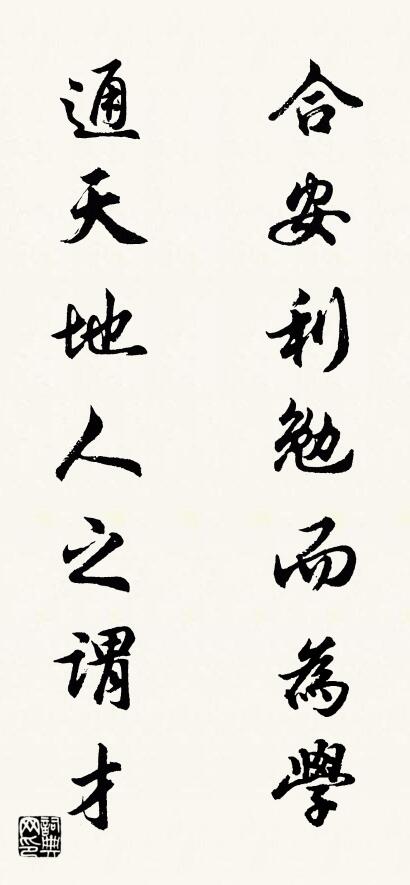 合安利勉而為學
通天地人之謂才
詞典网印